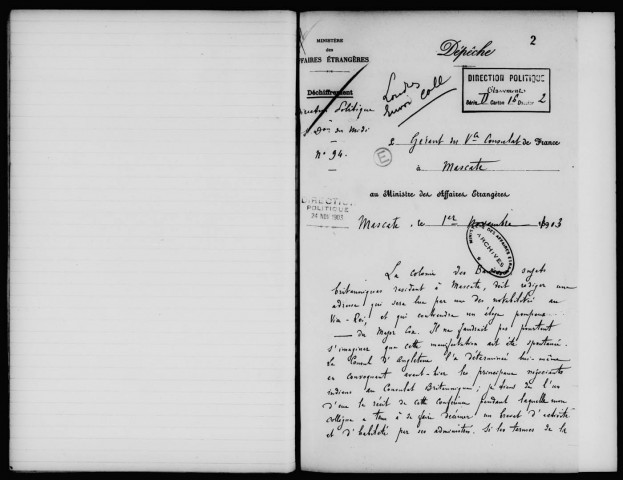 2
MINISTÈRE
des
FAIRES ÉTRANGÈRES
Dépêche
Déchiffrement
Londres
envoi coll
DIRECTION POLITIQUE
Classement
Série D Carton 16 Dossier 2
Direction Politique
Don du Midi
N° 94.
E
Le Gérant du Vce Consulat de France
à
Mascate
au Ministre des Affaires Étrangères
DIRECTION
POLITIQUE
24 NOV 1903
Mascate, le 1er Novembre 1903
MINISTÈRE DES AFFAIRES ETRANGÈRES
ARCHIVES
La colonie des sujets
britanniques résidant à Mascate, doit rédiger une
adresse qui sera lue par un des notabilités au
Vice-Roi, et qui contiendra un éloge pompeux
du Major Cox. Il ne faudrait pas pourtant
s'imaginer que cette manifestation ait été spontanée.
Le Consul d'Angleterre l'a déterminée lui-même
en convoquant avant-hier les principaux négociants
indiens au Consulat Britannique; je tiens de l'un
d'eux le récit de cette conférence pendant laquelle mon
collègue a tenu à se faire décerner un brevet d'activité
et d'habileté par ses administrés. Si les termes de la